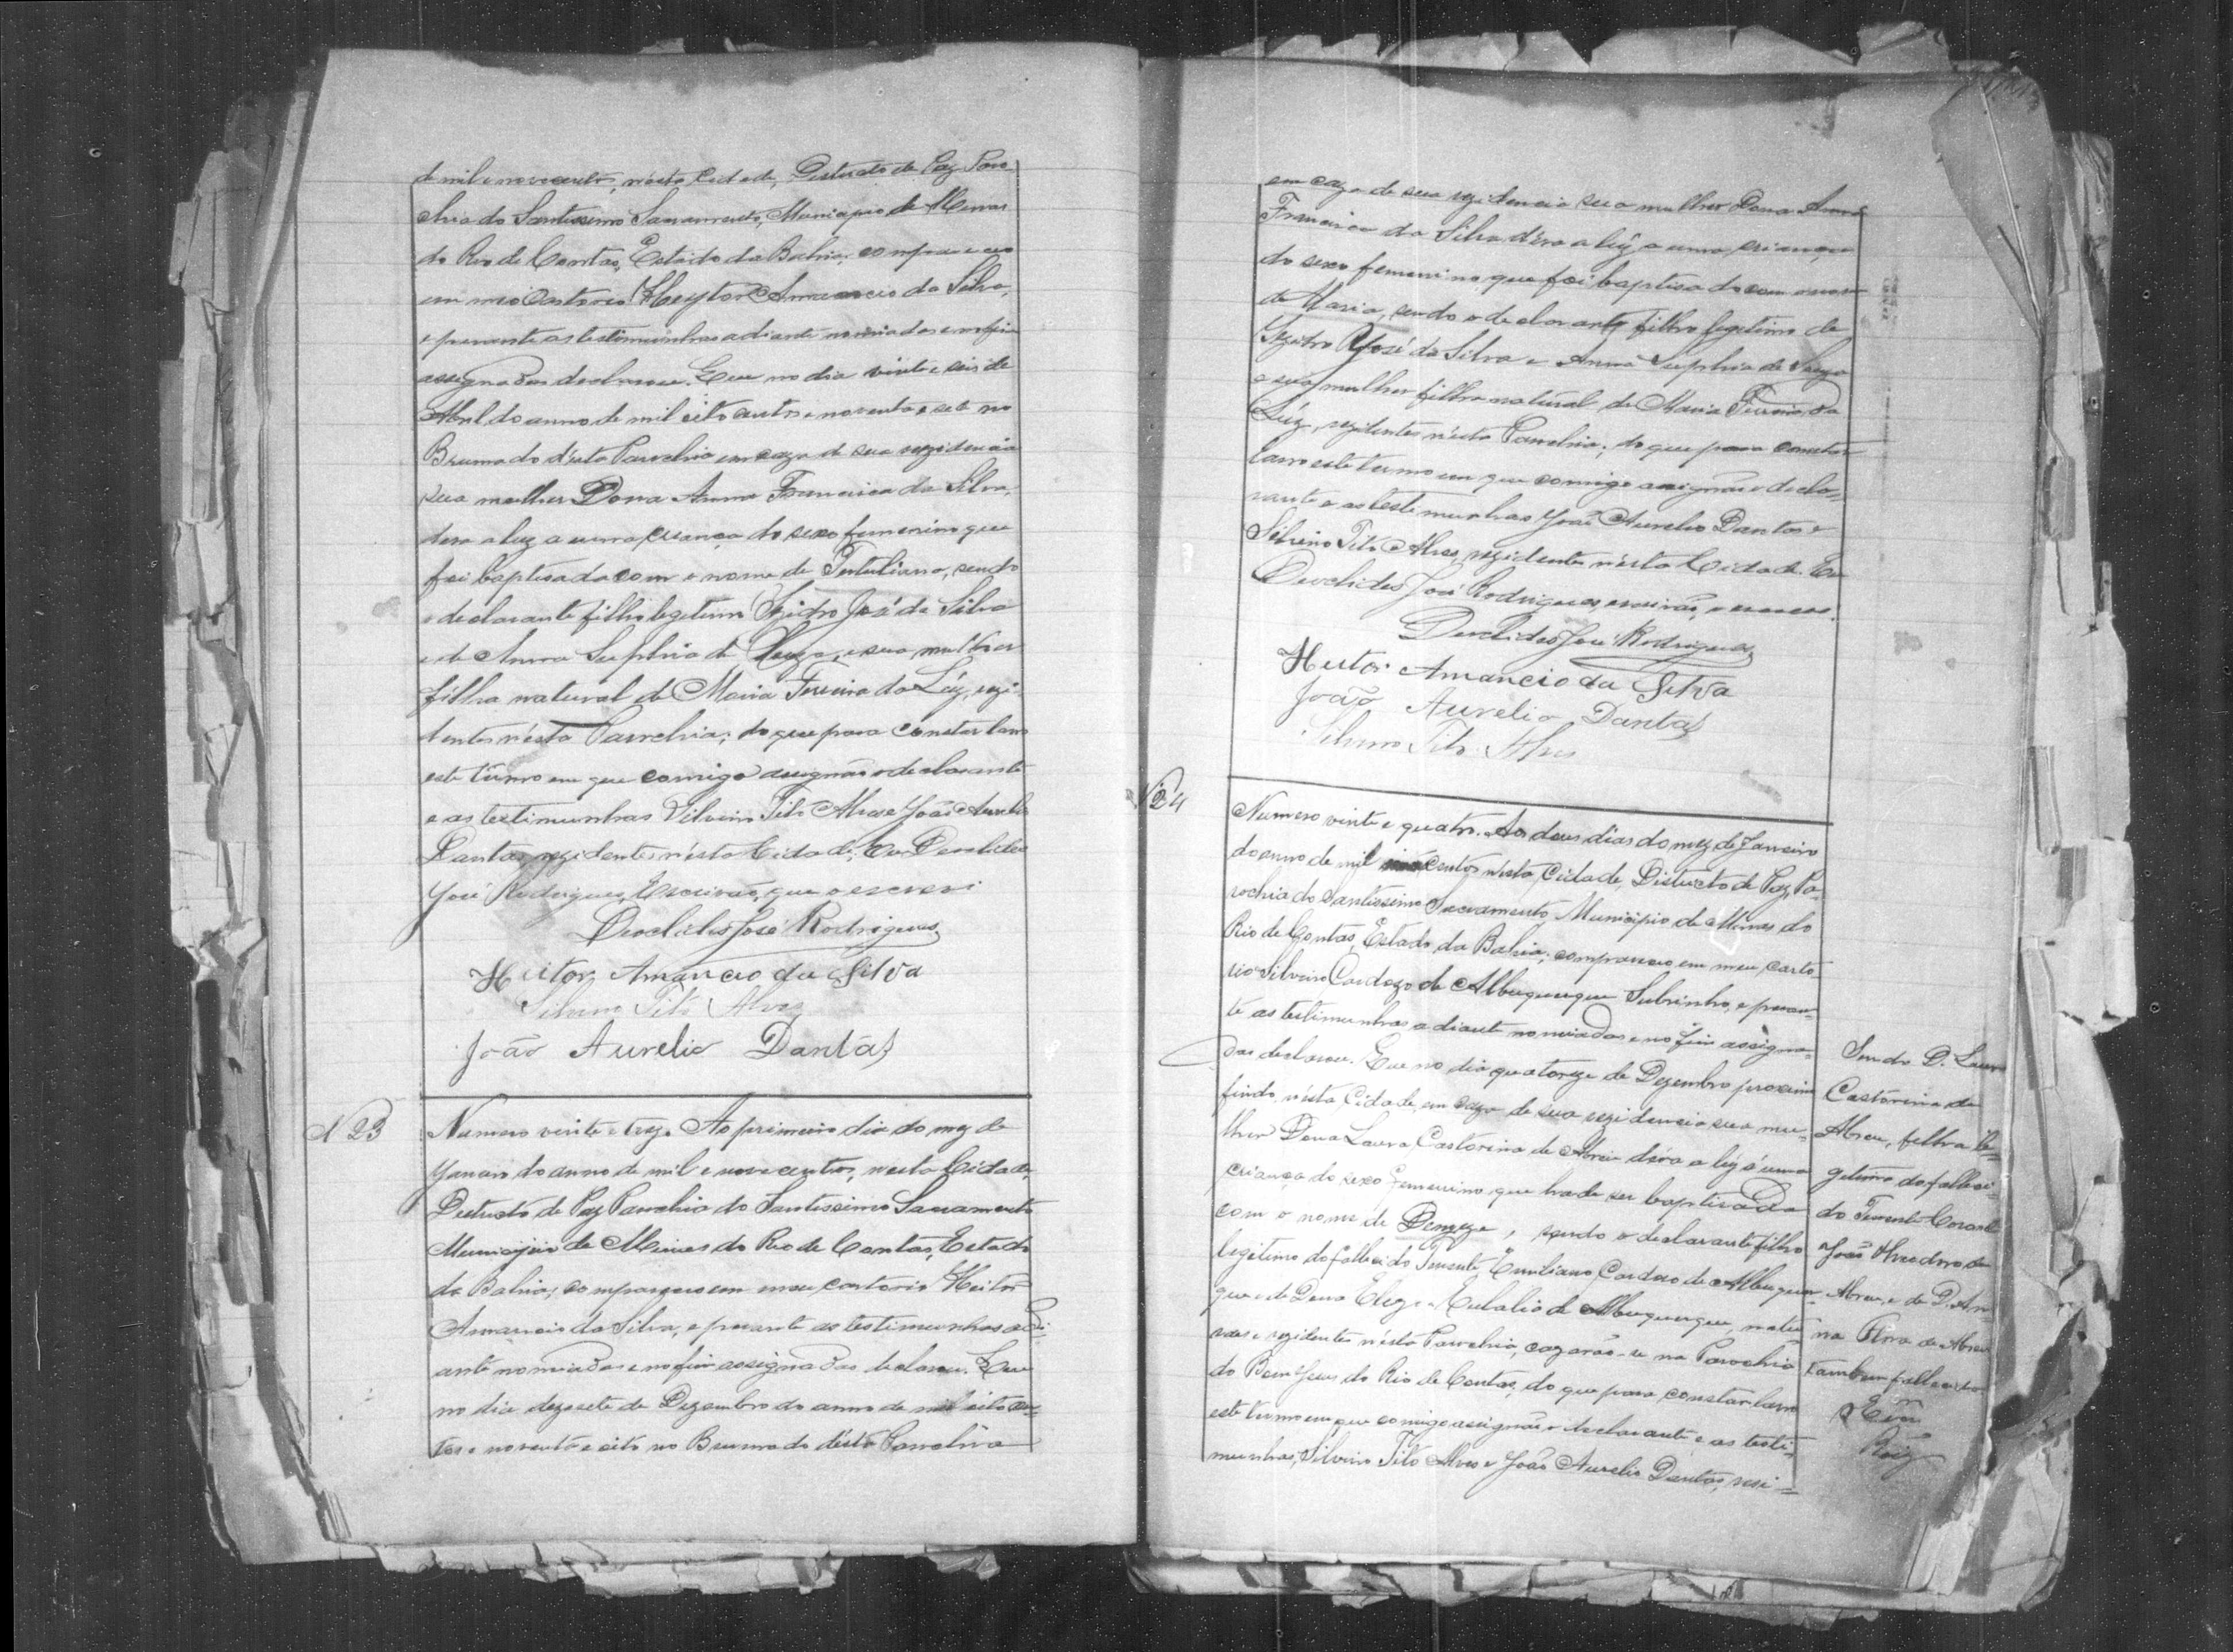 de mil e novecentos, nesta Cidade, Districto de Paz Paro
chia do Santissimo Sacramento, Municipio de Minas
do Rio de Contas, Estado da Bahia, compareceu
em meo Cartorio Heytor Amancio da Silva,
e perante as testimunhas adiante nomiadas e no fim
assignadas declarou. Que no dia vinte e seis de
Abril do anno de mil oito centos e noventa e sete no
Brumado désta Parochia em caza de sua rezidencia
sua mulher Dona Anna Francisca da Silva,
dera a luz a uma criança do sexo femenino que
foi baptisada com o nome de Tertuliana, sendo
o declarante filho legetimo Izidro José da Silva
e de Anna Suphia de Souza, e sua mulher
filha natural de Maria Ferreira da Lúz, rezi
dentes n'ésta Parochia; do que para constar lavro
este termo em que comigo assignão o declarante
e as testimunhas Silvino Tito Alves e João Aurelio
Dantas, rezidentes n'ésta Cidade; Eu Deoclides
José Rodrigues, Escrivão, que o escrevi
Deoclides José Rodrigues
Heitor Amancio da Silva
Silvino Tito Alves
João Aurelio Dantas
N 23
Numero vinte e trez. Ao primeiro dia do mez de
Janeiro do anno de mil e nove centos, nesta Cidade,
Districto de Paz Parochia do Santissimo Sacramento
Municipio de Minas do Rio de Contas, Estado
da Bahia; compareceo em meu cartorio Heitor
Amancio da Silva, e perante as testimunhas adi
ante nomiadas e no fim assignadas declarou. Que
no dia dezesete de Dezembro do anno de mil oito cen
tos e noventa e oito no Brumado désta Parochia
em caza de sua rezidencia sua mulher Dona Anna
Francisca da Silva déra a lúz a uma criança
do sexo femenino que foi baptisada com o nome
de Maria, sendo o declarante filho legetimo de
Izidro José da Silva e Anna Suphia de Souza
e sua mulher filha natural de Maria Ferreira da
Lúz, rezidentes n'ésta Parochia; do que para constar
lavro este termo em que comigo assignão o decla-
rante e as testimunhas João Aurelio Dantas e
Silvino Tito Alves, rezidentes n'ésta Cidade. Eu
Deoclides José Rodrigues, escrivão, o escrevi.
Deoclides José Rodrigues
Heitor Amancio da Silva
João Aurelio Dantas
Silvino Tito Alves
N 24
Numero vinte e quatro. Aos dous dias do mez de Janeiro
do anno de mil centos n'ésta Cidade, Districto de Paz, Pa-
rochia do Santissimo Sacramento, Municipio de Minas do
Rio de Contas, Estado da Bahia, compareceo em meu carto
rio Silvino Cardozo de Albuquerque Subrinho, e peran-
te as testimunhas adiante nomiadas e no fim assigna-
das declarou. Que no dia quatorze de Dezembro proximo
findo, n'ésta Cidade, em caza de sua rezidencia sua mu-
lher Dona Laura Castorina de Abreu déra a lúz á uma
criança do sexo femenino que hade ser baptisada
com o nome de , sendo o declarante filho
legitimo do fallecido Tenente Emiliano Cardoso de Albuquer-
que e de Dona Eulalia de Albuquerque, natu-
raes e rezidentes n'ésta Parochia, cazarão-se na Parochia
do Bom Jesus do Rio de Contas, do que para constar lavro
este termo em que comigo assignão o declarante e as testi-
munhas, Silvino Tito Alves e João Aurelio Dantas, resi-
Sendo D. Laura
Castorina de
Abreu, filha le-
getima do falleci-
do Tenente Coronel
João de
Abreu, e de D. An-
na de Abreu
tambem fallecida